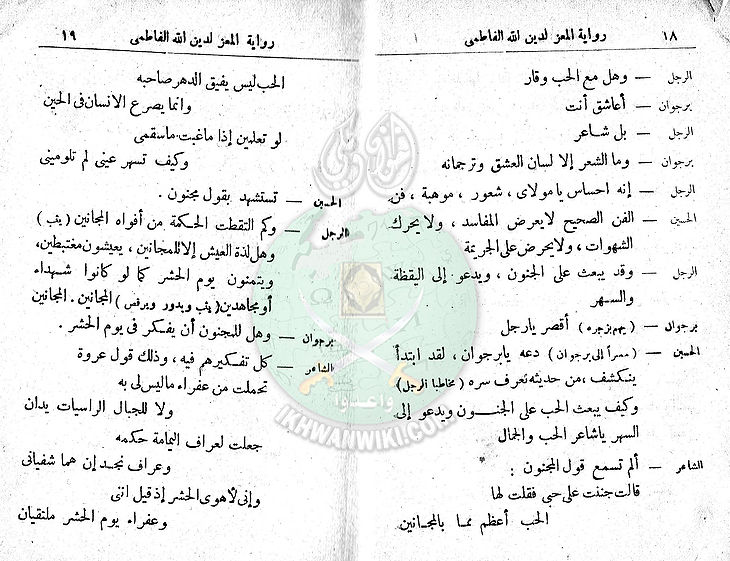 ١٨ رواية المعز لدين الله الفاطمى
الرجل — وهل مع الحب وقار
برجوان — أعاشق أنت
الرجل — بل شاعر
برجوان — وما الشعر إلا لسان العشق وترجمانه
الرجل — إنه احساس يا مولاى ، شعور ، موهبة ، فن
الحسين — الفن الصحيح لا يعرض المفاسد ، ولا يحرك
الشهوات ، ولا يحرض على الجريمة
الرجل — وقد يبعث على الجنون ، ويدعو إلى اليقظة
والسهر
برجوان — ( يهم بزجره ) أقصر يارجل
الحسين — ( مسراً الى برجوان ) دعه يابرجوان ، لقد ابتدأ
ينكشف ، من حديثه نعرف سره ( مخاطبا الرجل )
وكيف يبعث الحب على الجنون ويدعو إلى
السهر ياشاعر الحب والجمال
الشاعر — ألم تسمع قول المجنون :
قالت جننت على حبى فقلت لها
الحب أعظم مما بالمجانين
رواية المعز لدين الله الفاطمى ١٩
الحب ليس يفيق الدهر صاحبه
وانما يصرع الانسان فى الحين
لو تعلمين إذا ماغبت ماسقمى
وكيف تسهر عينى لم تلومينى
الحسين — تستشهد بقول مجنون .
الرجل — وكم التقطت الحكمة من أفواه المجانين ( يثب )
وهل لذة العيش إلا للمجانين ، يعيشون مغتبطين ،
ويتمنون يوم الحشر كما لو كانوا شهداء
أو مجاهدين ( يثب ويدور ويرقص ) المجانين . المجانين
برجوان — وهل للمجنون أن يفكر فى يوم الحشر .
الشاعر — كل تفكيرهم فيه ، وذلك قول عروة
تحملت من عفراء ماليس لى به
ولا للجبال الراسيات يدان
جعلت لعراف اليمامة حكمه
وعراف نجد إن هما شفيانى
وإنى لأهوى الحشر إذ قيل اننى
وعفراء يوم الحشر ملتقيان
وأعدوا
IKHWANWIKI.COM